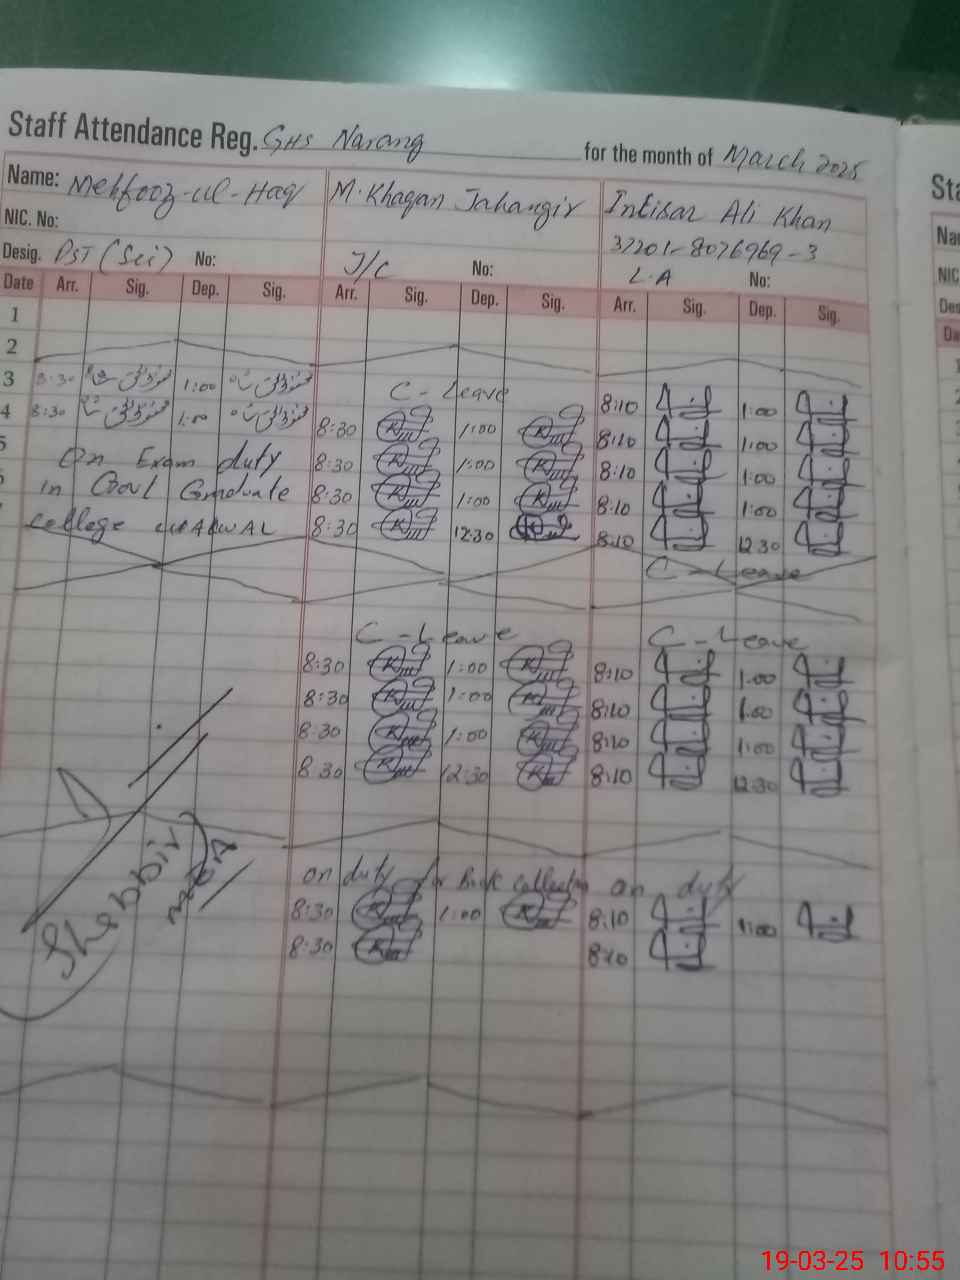 Staff Attendance Reg. GHS Narang for the month of March 2025
Name: Mehfooz-ul-Haq M. Khaqan Jahangir Intisar Ali Khan
NIC. No: 37201-8076969-3
Desig. PST (Sci) No: J/C No: L.A No:
Date Arr. Sig. Dep. Sig. Arr. Sig. Dep. Sig. Arr. Sig. Dep. Sig.
1
2
3 8:30 1:00 C-Leave 8:10 1:00
4 8:30 1:00 8:30 1:00 8:10 1:00
5 On Exam duty 8:30 1:00 8:10 1:00
in Govt Graduate 8:30 1:00 8:10 1:00
college 8:30 12:30 8:10 12:30
C-Leave
C-Leave C-Leave
8:30 1:00 8:10 1:00
8:30 1:00 8:10 1:00
8:30 1:00 8:10 1:00
8:30 12:30 8:10 12:30
on duty for Book collection on duty
8:30 1:00 8:10 1:00
8:30 8:10
Shabbir
MEA
Sta
Na
NIC
Des
Da
19-03-25 10:55